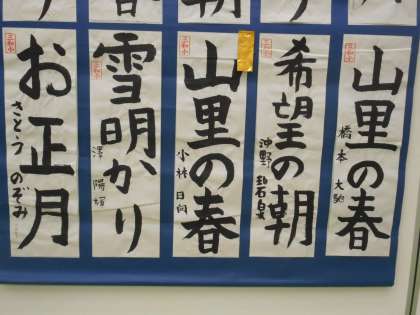 山里の春
橋本 大
希望の朝
沖野
山里の春
小林 日向
雪明かり
澤 陽
お正月
さとう のぞみ